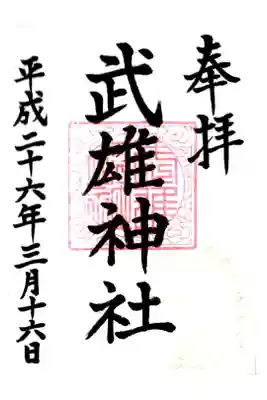 奉拝
武雄神社
平成二十六年三月十六日